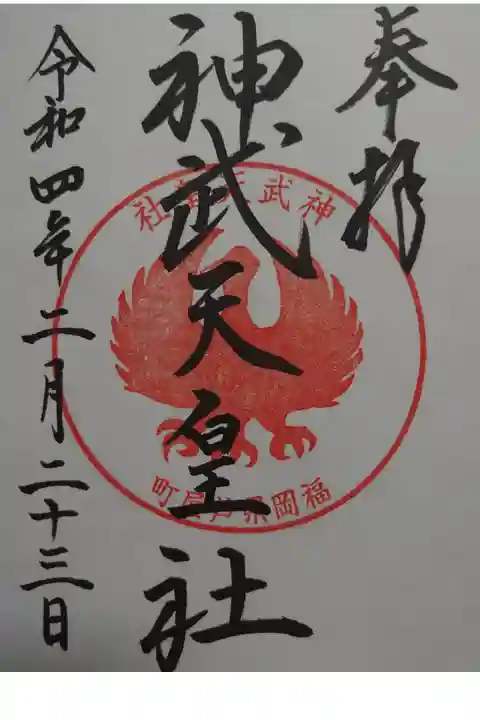 奉拝
神武天皇社
令和四年二月二十三日
神武天皇社
福岡県芦屋町